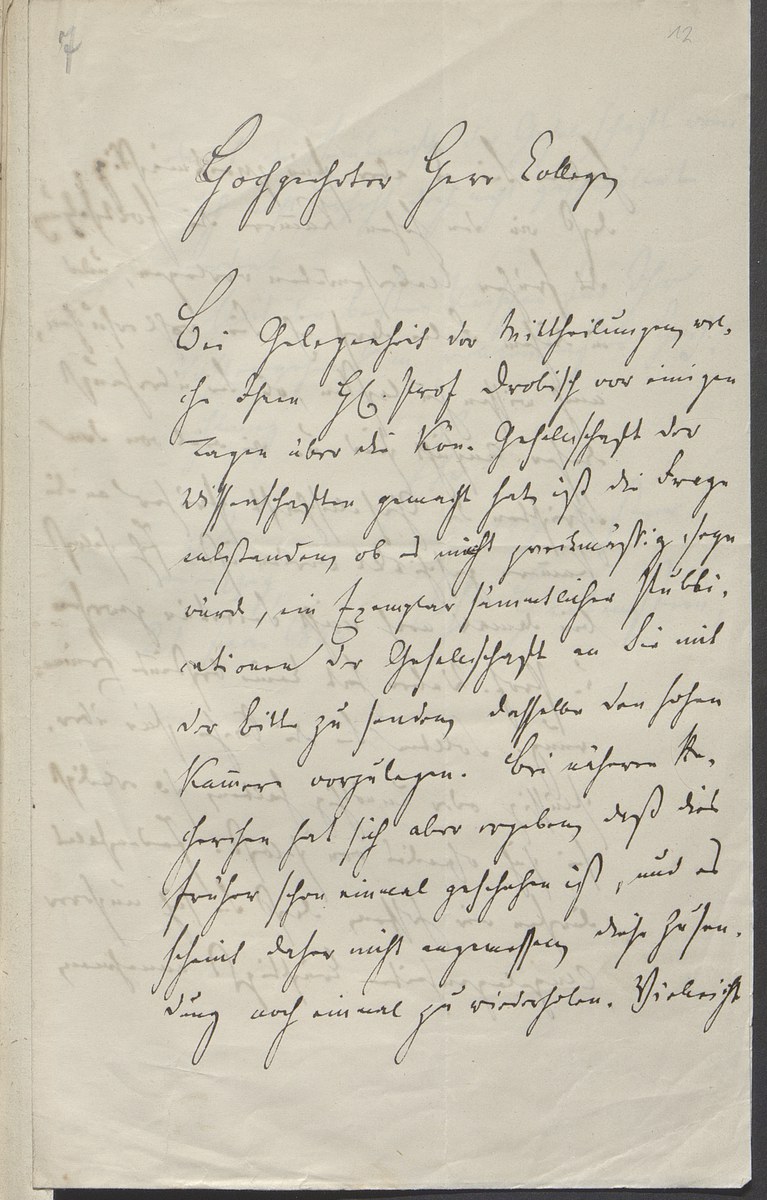 7
12
Hochgeehrter Herr College
Bei Gelegenheit der Mittheilungen, wel-
che Ihnen H. Prof Drobisch vor einigen
Tagen über die Kön. Gesellschaft der
Wissenschaften gemacht hat, ist die Frage
entstanden, ob es nicht zweckmässig seyn
würde, ein Exemplar sämmtlicher Publi-
cationen der Gesellschaft an Sie mit
der Bitte zu senden, dasselbe den hohen
Kam̄ern vorzulegen. Bei näheren Re-
cherchen hat sich aber ergeben, daß dies
früher schon einmal geschehen ist, und es
scheint daher nicht angemessen, diese Zusen-
dung noch einmal zu wiederholen. Vielleicht